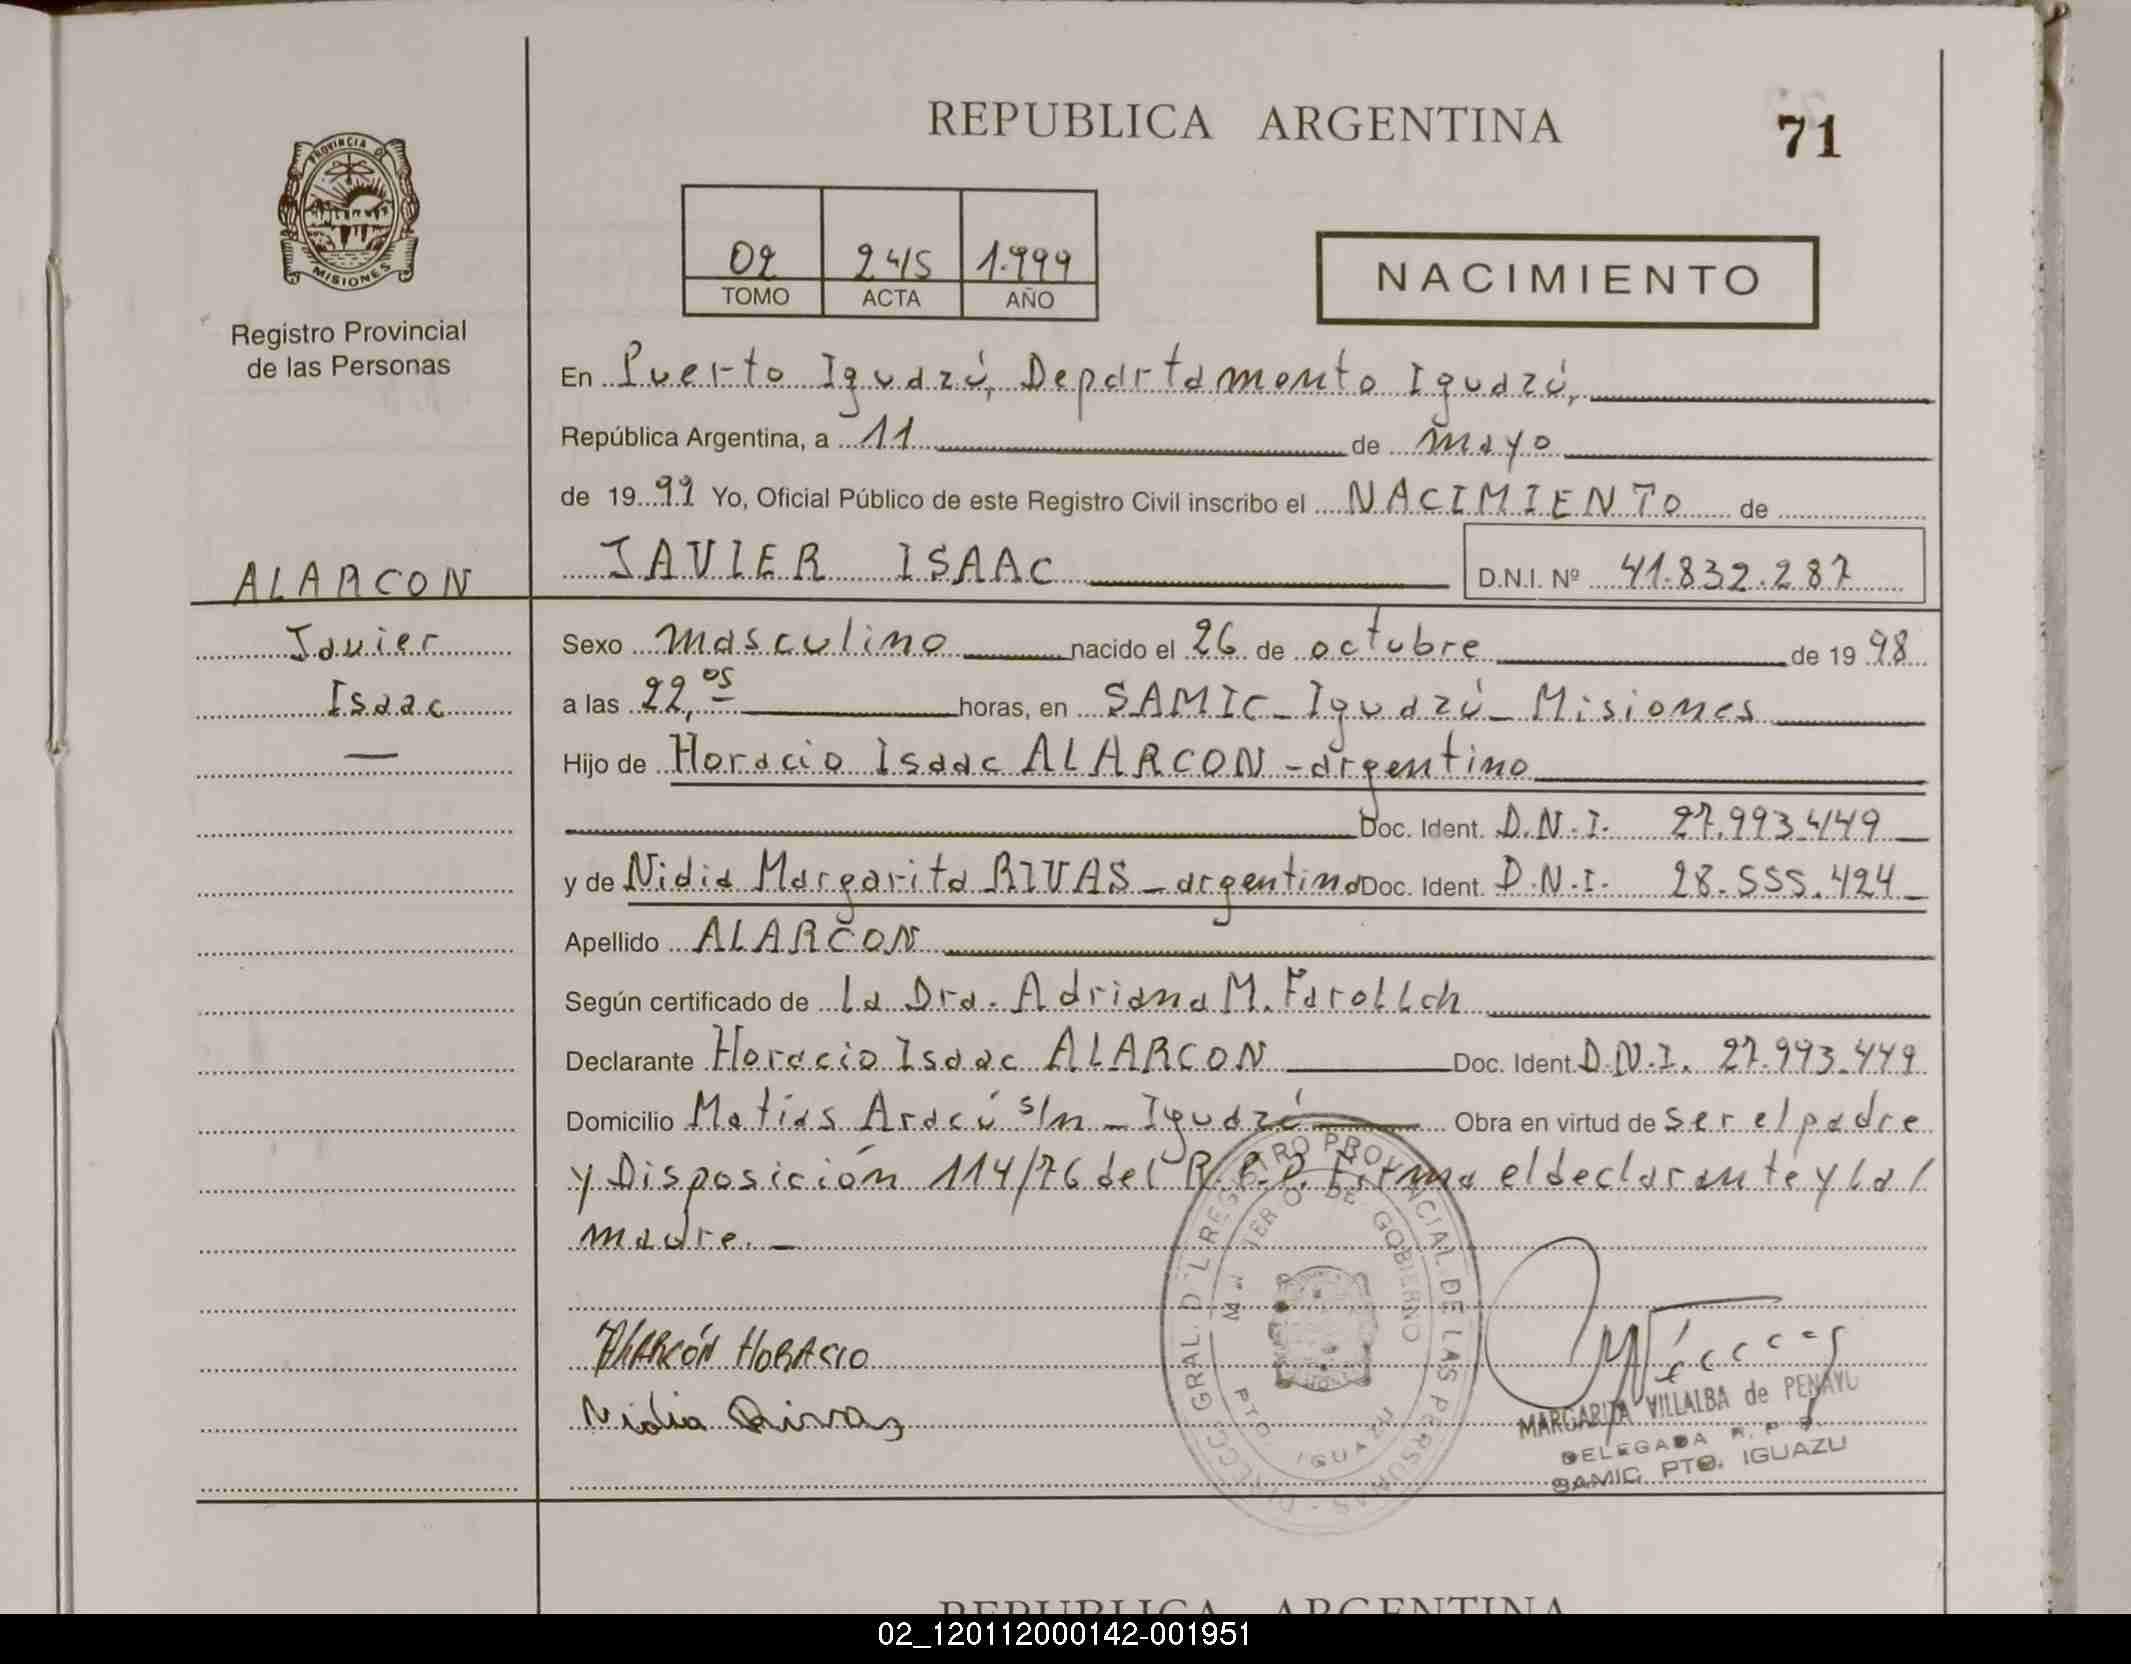 REPUBLICA ARGENTINA
71
PROVINCIA DE
MISIONES
Registro Provincial
de las Personas
02 245 1.999
TOMO ACTA AÑO
NACIMIENTO
En Puerto Iguazú, Departamento Iguazú,
República Argentina, a 11 de mayo
de 1999 Yo, Oficial Público de este Registro Civil inscribo el NACIMIENTO de
JAVIER ISAAC D.N.I. Nº 41.832.287
ALARCON
Javier
Isaac
Sexo masculino nacido el 26 de octubre de 1998
a las 22,05 horas, en SAMIC - Iguazú - Misiones
Hijo de Horacio Isaac ALARCON - argentino
Doc. Ident. D.N.I. 27.993.449
y de Nidia Margarita RIVAS - argentina Doc. Ident. D.N.I. 28.555.424
Apellido ALARCON
Según certificado de la Dra. Adriana M.
Declarante Horacio Isaac ALARCON Doc. Ident. D.N.I. 27.993.449
Domicilio Matias Aracú s/n - Iguazú Obra en virtud de ser el padre
y Disposición 114/76 del R.P.P. Firma el declarante y la /
madre. -
ALARCÓN HORACIO
Nidia Rivas
REGISTRO PROVINCIAL DE LAS PERSONAS
GOBIERNO
PTO. IGUAZU
MARGARITA VILLALBA de PENAYO
DELEGADA R. P. P.
SAMIC PTO. IGUAZU
REPUBLICA ARGENTINA
02_120112000142-001951